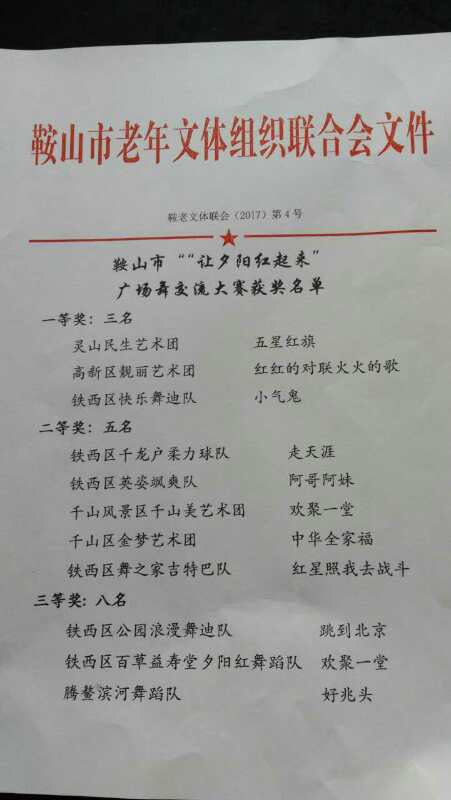 鞍山市老年文体组织联合会文件
鞍老文体联会（2017）第 4 号
鞍山市 ““让夕阳红起来”
广场舞交流大赛获奖名单
一等奖：三名
灵山民生艺术团 五星红旗
高新区靓丽艺术团 红红的对联火火的歌
铁西区快乐舞迪队 小气鬼
二等奖：五名
铁西区千龙户柔力球队 走天涯
铁西区英姿飒爽队 阿哥阿妹
千山风景区千山美艺术团 欢聚一堂
千山区金梦艺术团 中华全家福
铁西区舞之家吉特巴队 红星照我去战斗
三等奖：八名
铁西区公园浪漫舞迪队 跳到北京
铁西区百草益寿堂夕阳红舞蹈队 欢聚一堂
腾鳌滨河舞蹈队 好兆头